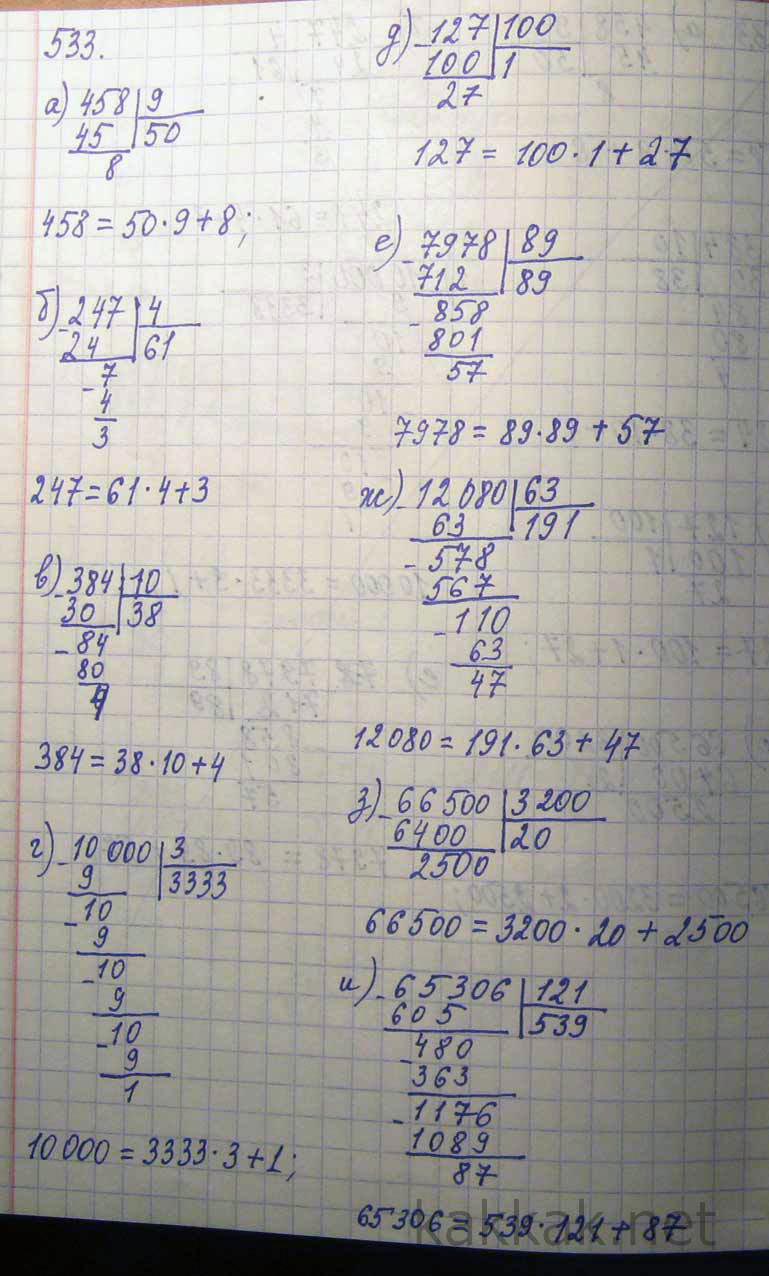 533.
а) 458 | 9
45 | 50
8
458 = 50·9+8;
б) -247 | 4
24 | 61
-7
4
3
247=61·4+3
в) -384 | 10
30 | 38
-84
80
4
384=38·10+4
г) -10 000 | 3
9 | 3333
-10
9
-10
9
-10
9
1
10 000 = 3333·3+1;
д) -127 | 100
100 | 1
27
127 = 100·1+27
е) -7978 | 89
712 | 89
-858
801
57
7978 = 89·89 + 57
ж) -12 080 | 63
63 | 191
-578
567
-110
63
47
12 080 = 191·63 + 47
з) -66 500 | 3 200
6400 | 20
2500
66 500 = 3200·20 + 2500
и) -65306 | 121
605 | 539
-480
363
-1176
1089
87
65 306 = 539·121 + 87
kakkak.net